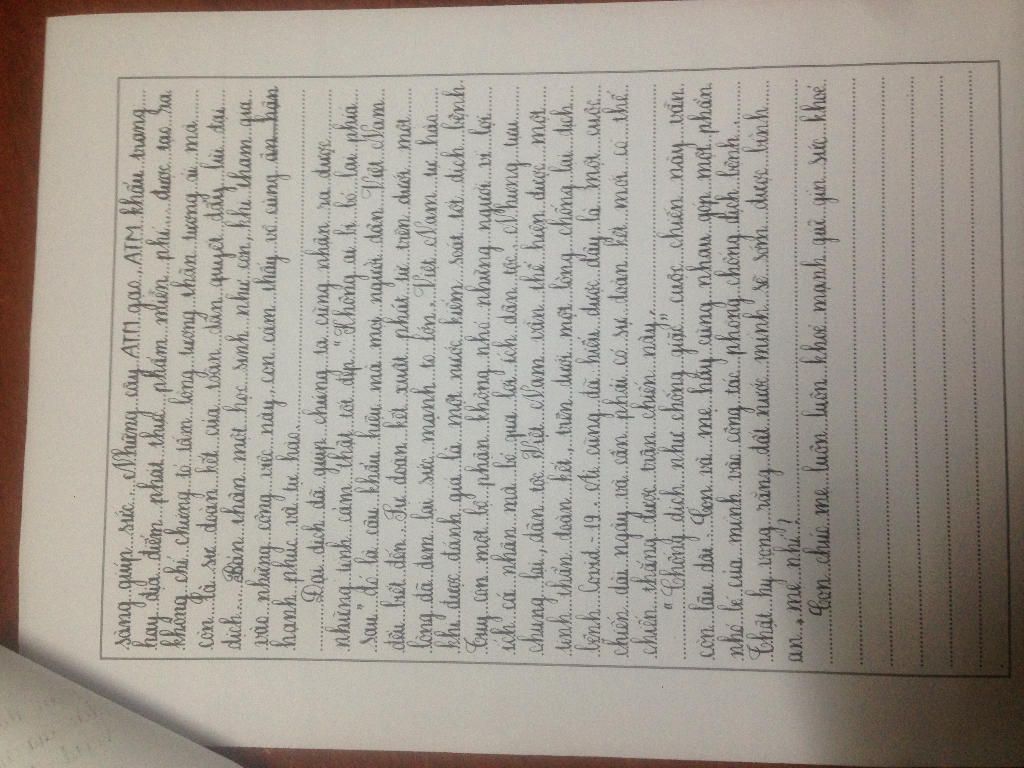 sàng giúp sức. Những cây ATM gạo, ATM khẩu trang
hay địa điểm phát thực phẩm miễn phí... được tạo ra
không chỉ chứng tỏ tấm lòng tương thân tương ái mà
còn là sự đoàn kết của nhân dân quyết đẩy lùi đại
dịch. Bản thân một học sinh như con, khi tham gia
vào những công việc này con cảm thấy vô cùng ân hận
hạnh phúc và tự hào.
Đại dịch đã giúp chúng ta cũng nhận ra được
những tình cảm thật tốt đẹp. "Không ai bị bỏ lại phía
sau" đó là câu khẩu hiệu mà mọi người dân Việt Nam
đều biết đến. Sự đoàn kết xuất phát từ trên dưới một
lòng đã đem lại sức mạnh to lớn. Việt Nam tự hào
khi được đánh giá là một nước kiểm soát tốt dịch bệnh.
Tuy còn một bộ phận không nhỏ những người vì lợi
ích cá nhân mà bỏ qua lợi ích dân tộc. Nhưng tựu
chung lại, dân tộc Việt Nam vẫn thể hiện được một
tinh thần đoàn kết, trên dưới một lòng chống lại dịch
bệnh Covid-19. Ai cũng đã hiểu được đây là một cuộc
chiến dài ngày và cần phải có sự đoàn kết mới có thể
chiến thắng được trận chiến này.
"Chống dịch như chống giặc" cuộc chiến này vẫn
còn lâu dài. Con và mẹ hãy cùng nhau góp một phần
nhỏ bé của mình vào công tác phòng chống dịch bệnh.
Thật hy vọng rằng đất nước mình sẽ sớm được bình
an mẹ nhỉ?
Con chúc mẹ luôn luôn khoẻ mạnh giữ gìn sức khoẻ